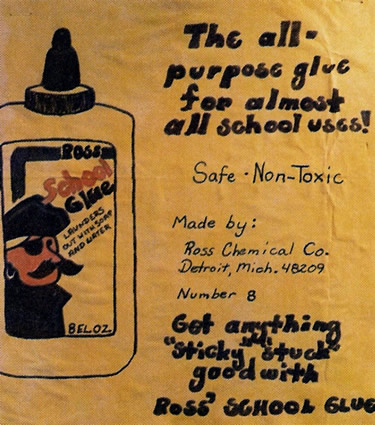 ROSS
School
Glue
LAUNDERS
OUT WITH SOAP
AND WATER
8FL OZ.
The all-
purpose glue
for almost
all school uses!
Safe - Non-Toxic
Made by:
Ross Chemical Co.
Detroit, Mich. 48209
Number 8
Get anything
"sticky" "stuck"
good with
ROSS' SCHOOL GLUE